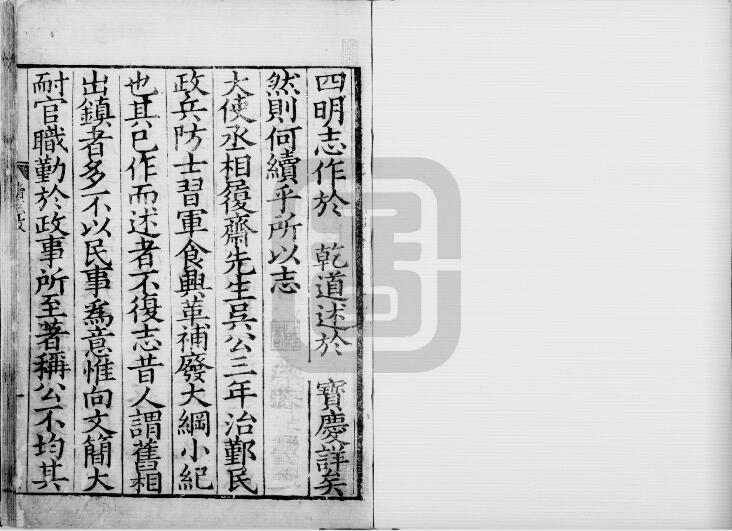 四明志作於　乾道述於　寶慶詳矣
然則何續乎所以志
大使丞相履齋先生吳公三年治鄞民
政兵防士習軍食興革補廢大綱小紀
也其已作而述者不復志昔人謂舊相
出鎮者多不以民事爲意惟向文簡大
耐官職勤於政事所至著稱公不均其